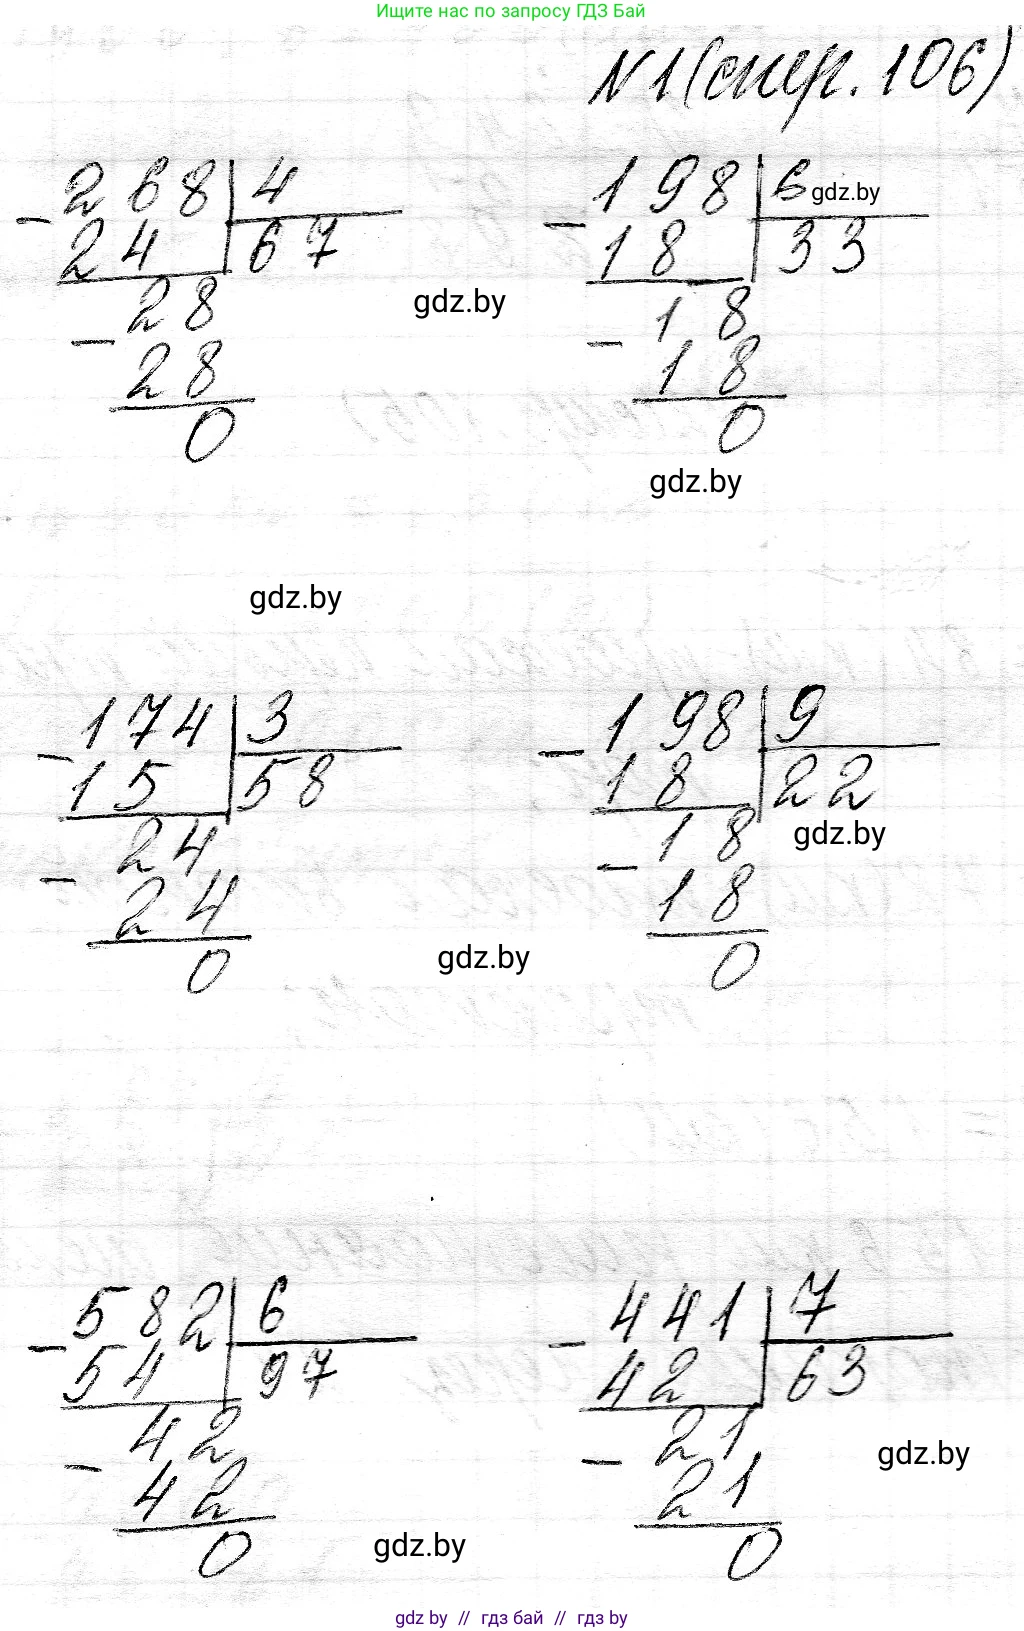 Ищите нас по запросу ГДЗ Бай
N 1 (стр. 106)
- 268 | 4
24 | 67
- 28
28
0
- 198 | 6
18 | 33
- 18
18
0
gdz.by
gdz.by
gdz.by
gdz.by
- 174 | 3
15 | 58
- 24
24
0
- 198 | 9
18 | 22
- 18
18
0
gdz.by
gdz.by
- 582 | 6
54 | 97
- 42
42
0
- 441 | 7
42 | 63
- 21
21
0
gdz.by
gdz.by
gdz by // гдз бай // гдз by